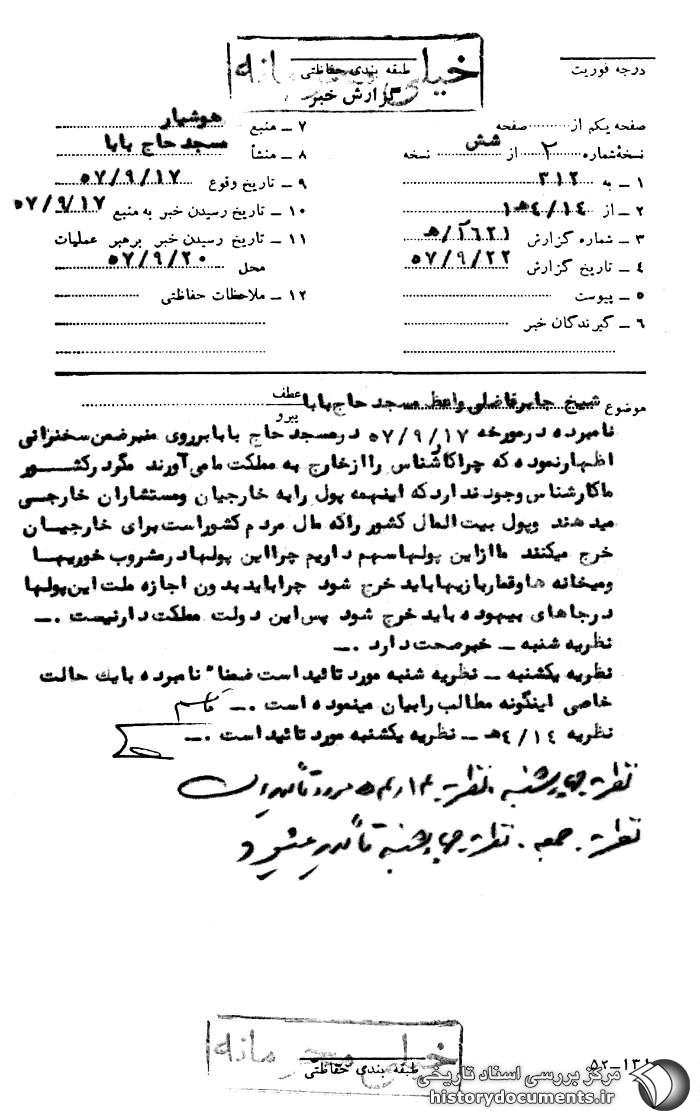 خیلی محرمانه
طبقه بندی حفاظتی
درجه فوریت
گزارش خبر
صفحه یکم از صفحه
نسخه شماره ۲ از شش نسخه
۱ ــ به ۳۱۲
۲ ــ از ۴/۱۴هـ۱
۳ ــ شماره گزارش
۴ ــ تاریخ گزارش ۵۷/۹/۲۲
۵ ــ پیوست
۶ ــ گیرندگان خبر
۷ ــ منبع هوشیار
۸ ــ منشأ مسجد حاج بابا
۹ ــ تاریخ وقوع ۵۷/۹/۱۷
۱۰ ــ تاریخ رسیدن خبر به منبع ۵۷/۹/۱۷
۱۱ ــ تاریخ رسیدن خبر برهبر عملیات
محل ۵۷/۹/۲۰
۱۲ ــ ملاحظات حفاظتی
موضوع شیخ جابر فاضلی واعظ مسجد حاج بابا عطف
پیرو
نامبرده در مورخه ۵۷/۹/۱۷ در مسجد حاج بابا بر روی منبر ضمن سخنرانی
اظهار نموده که چرا کارشناس را از خارج به مملکت ما می‌آورند مگر در کشور
ما کارشناس وجود ندارد که اینهمه پول را به خارجیان و مستشاران خارجی
میدهند و پول بیت المال کشور را که مال مردم کشور است برای خارجیان
خرج میکنند ما از این پولها سهم داریم چرا این پولها در مشروب خوریها
و میخانه ها و قمار بازیها باید خرج شود چرا باید بدون اجازه ملت این پولها
در جاهای بیهوده باید خرج شود پس این دولت مملکت دار نیست .ــ
نظریه شنبه ــ خبر صحت دارد .ــ
نظریه یکشنبه ــ نظریه شنبه مورد تائید است ضمنا" نامبرده با یک حالت
خاصی اینگونه مطالب را بیان مینموده است .ــ قاسم
نظریه ۴/۱۴هـ ــ نظریه یکشنبه مورد تائید است .ــ
نظریه چهارشنبه . نظریه ۱۴/۴هـ مورد تأیید است
نظریه جمعه . نظریه چهارشنبه تأیید میشود
خیلی محرمانه
طبقه بندی حفاظتی
مرکز بررسی اسناد تاریخی
historydocuments.ir